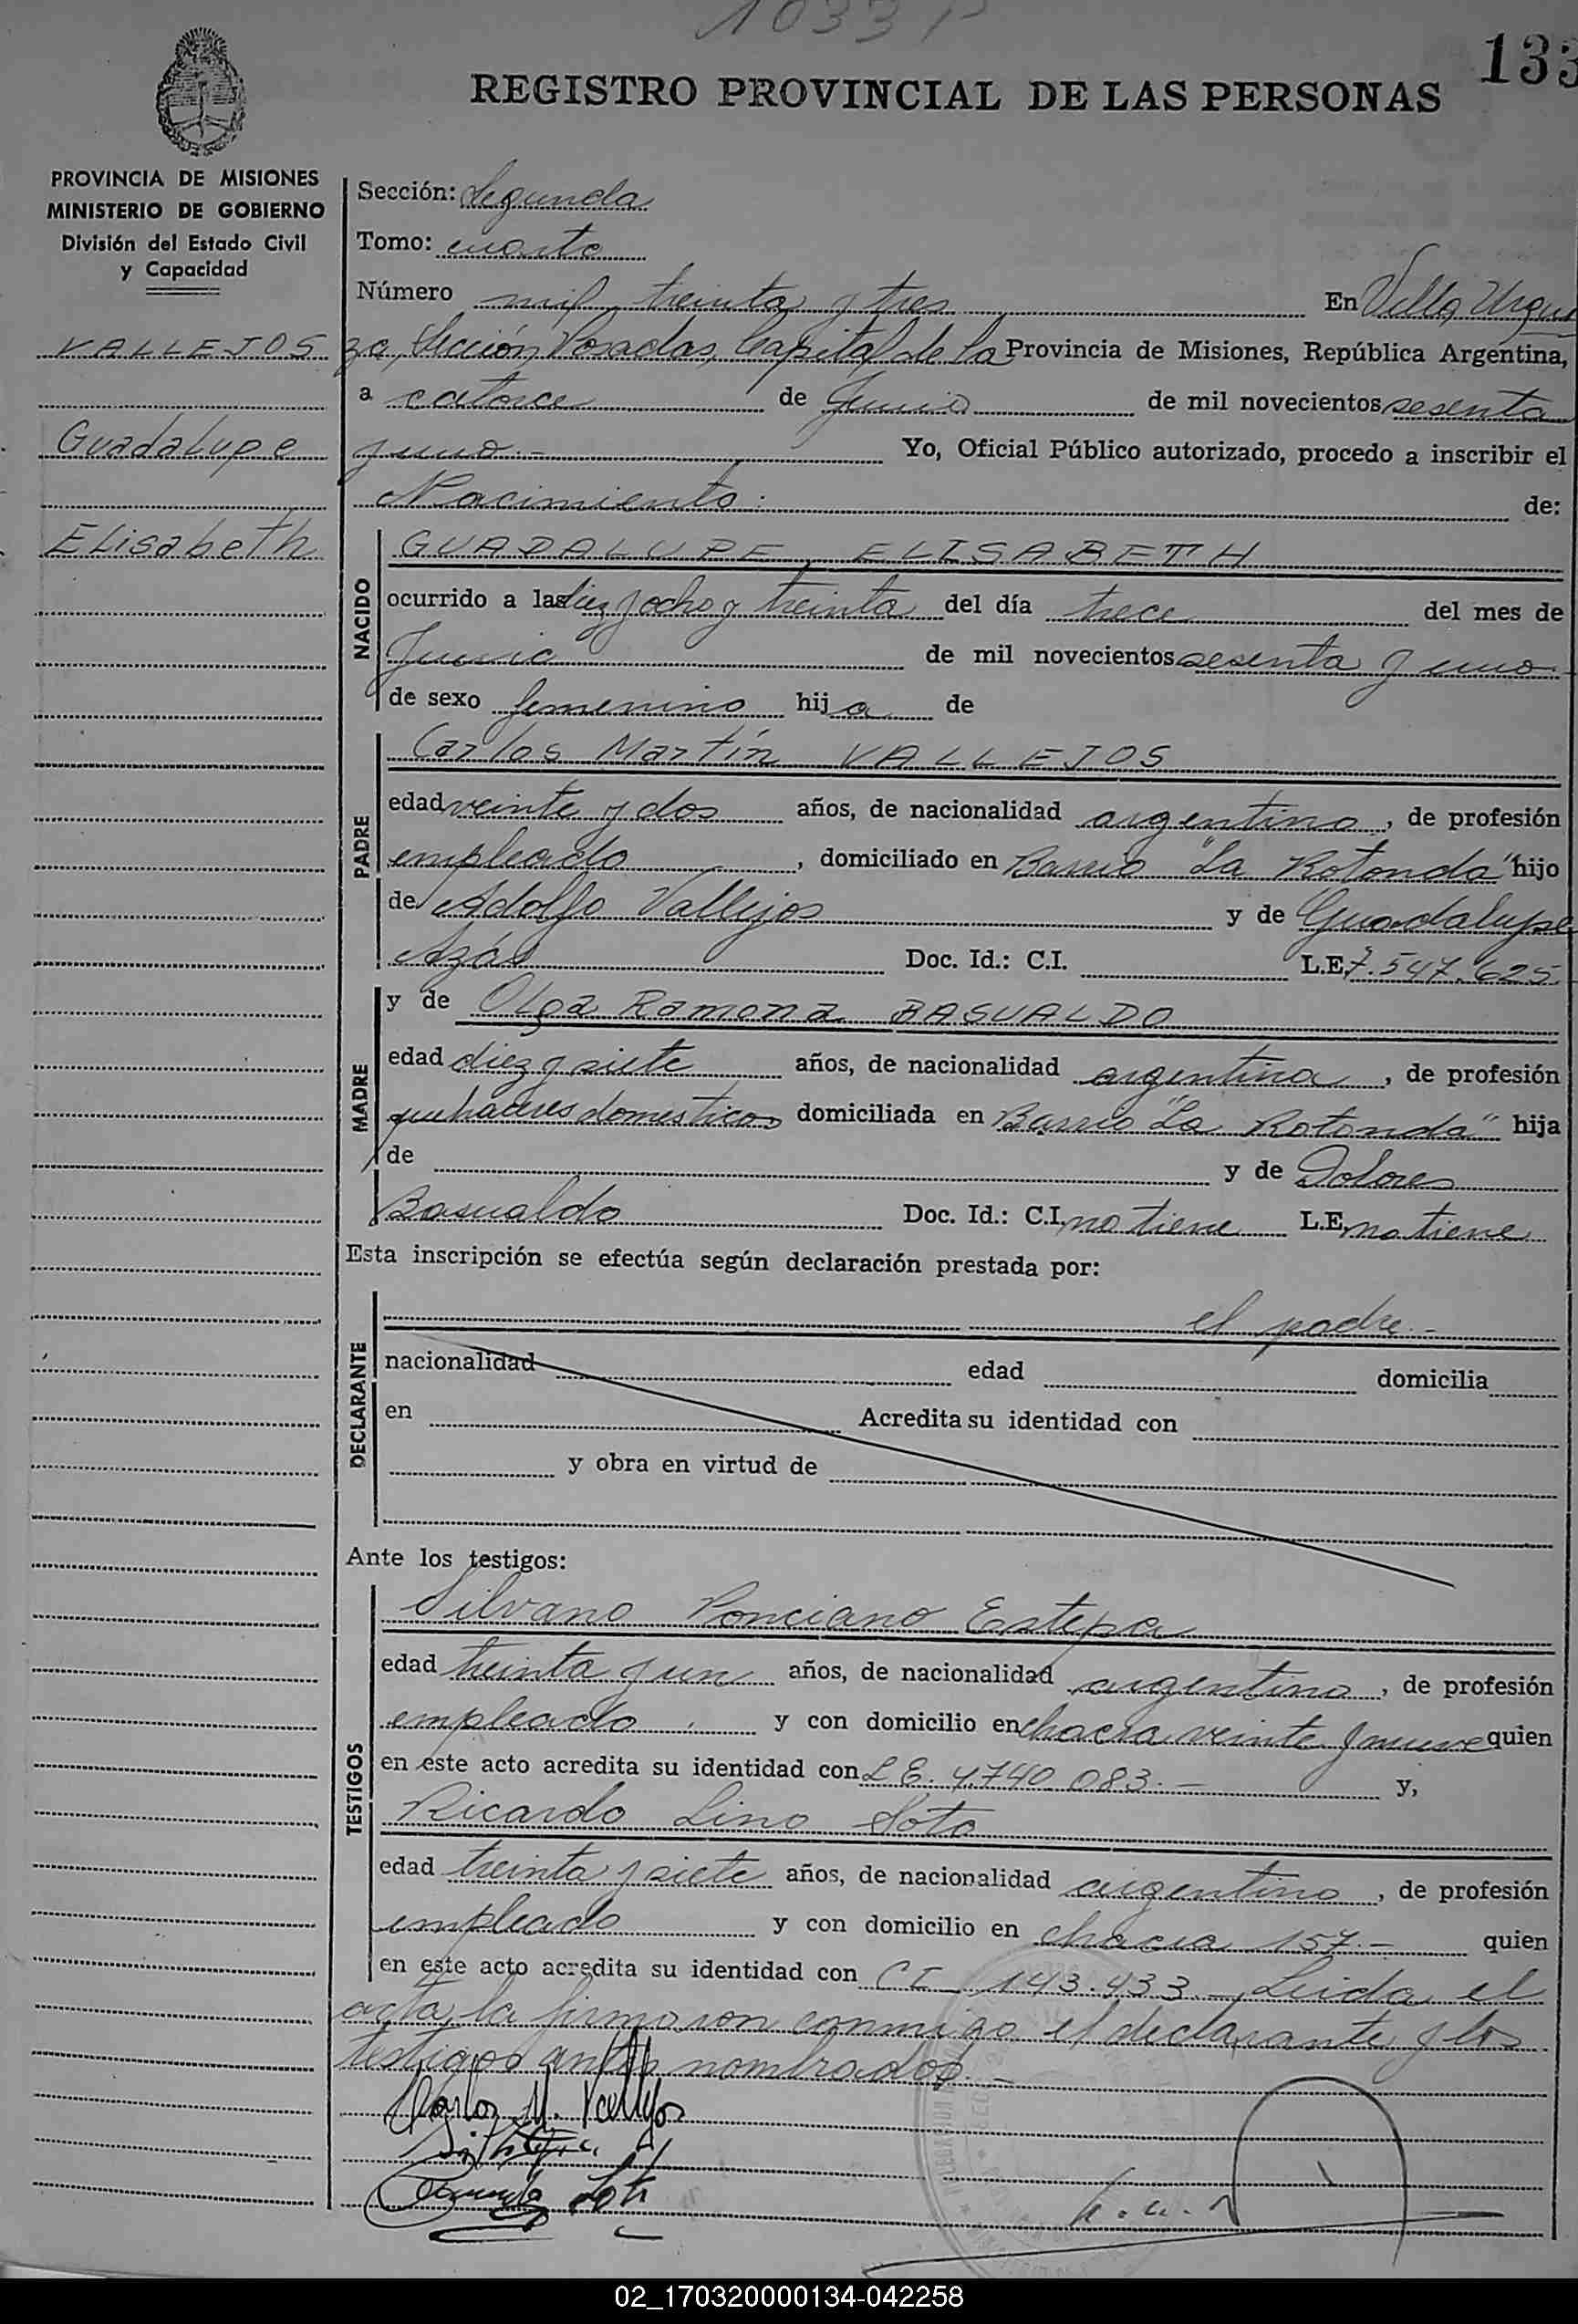 1033 P
133
REGISTRO PROVINCIAL DE LAS PERSONAS
PROVINCIA DE MISIONES
MINISTERIO DE GOBIERNO
División del Estado Civil
y Capacidad
VALLEJOS
Guadalupe
Elisabeth
Sección: Segunda
Tomo: cuarto
Número mil treinta y tres En Villa Urqui
za, Sección Posadas, Capital de la Provincia de Misiones, República Argentina,
a catorce de Junio de mil novecientos sesenta
y uno.- Yo, Oficial Público autorizado, procedo a inscribir el
Nacimiento: de:
NACIDO
GUADALUPE ELISABETH
ocurrido a las diez y ocho y treinta del día trece del mes de
Junio de mil novecientos sesenta y uno.
de sexo femenino hija de
PADRE
Carlos Martín VALLEJOS
edad veinte y dos años, de nacionalidad argentino, de profesión
empleado, domiciliado en Barrio "La Rotonda" hijo
de Adolfo Vallejos y de Guadalupe
Doc. Id.: C.I. L.E. 7.547.625
MADRE
y de Olga Ramona BASUALDO
edad diez y siete años, de nacionalidad argentina, de profesión
quehaceres domesticos domiciliada en Barrio "La Rotonda" hija
de y de Dolores
Basualdo Doc. Id.: C.I. no tiene L.E. no tiene
Esta inscripción se efectúa según declaración prestada por:
DECLARANTE
el padre.-
nacionalidad edad domicilia
en Acredita su identidad con
y obra en virtud de
Ante los testigos:
TESTIGOS
Silvano Ponciano Estepa
edad treinta y un años, de nacionalidad argentino, de profesión
empleado y con domicilio en chacra veinte y nueve quien
en este acto acredita su identidad con L E. 4.740 083.- y,
Ricardo Lino Soto
edad treinta y siete años, de nacionalidad argentino, de profesión
empleado y con domicilio en chacra 157.- quien
en este acto acredita su identidad con CI 143.433 - Leida el
acta, la firmaron conmigo el declarante y los
testigos antes nombrados.-
Carlos M. Vallejos
02_170320000134-042258